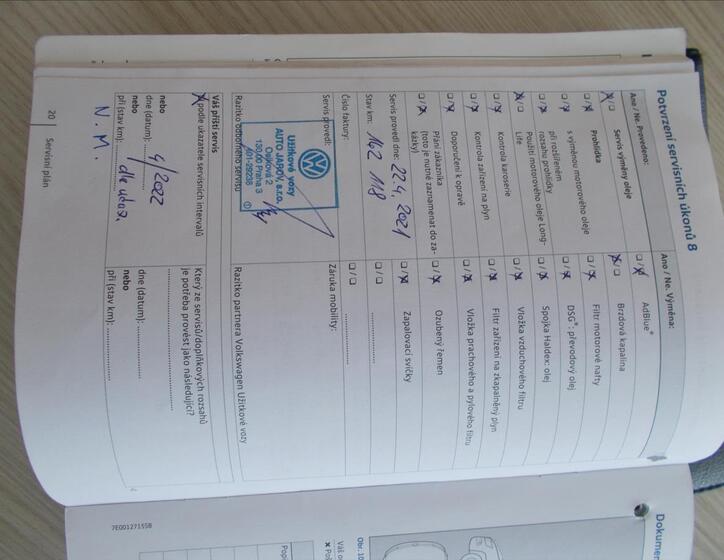 Potvrzení servisních úkonů 8
Ano / Ne. Provedeno:
Servis výměny oleje
Prohlídka
s výměnou motorového oleje
při rozšířeném
rozsahu prohlídky
Použití motorového oleje Long-
Life
Kontrola karoserie
Kontrola zařízení na plyn
Doporučení k opravě
Přání zákazníka
(toto je nutné zaznamenat do za-
kázky)
Servis provedl dne: 22.4.2021
Stav km: 162 118
Číslo faktury:
Servis provedl:
Razítko odborného servisu
Užitkové vozy
AUTO JAROV, s.r.o.
Osiková 2
130 00 Praha 3
Váš příští servis
podle ukazatele servisních intervalů
nebo
dne (datum): 4/2022
nebo
při (stav km):
N.M.
Ano / Ne. Výměna:
AdBlue®
Brzdová kapalina
Filtr motorové nafty
DSG®: převodový olej
Spojka Haldex: olej
Vložka vzduchového filtru
Filtr zařízení na zkapalněný plyn
Vložka prachového a pylového filtru
Ozubený řemen
Zapalovací svíčky
Záruka mobility:
Razítko partnera Volkswagen Užitkové vozy
Který ze servisů/doplňkových rozsahů
je potřeba provést jako následující?
dne (datum):
nebo
při (stav km):
20
Servisní plán
7E0012715SB
Obr. 10